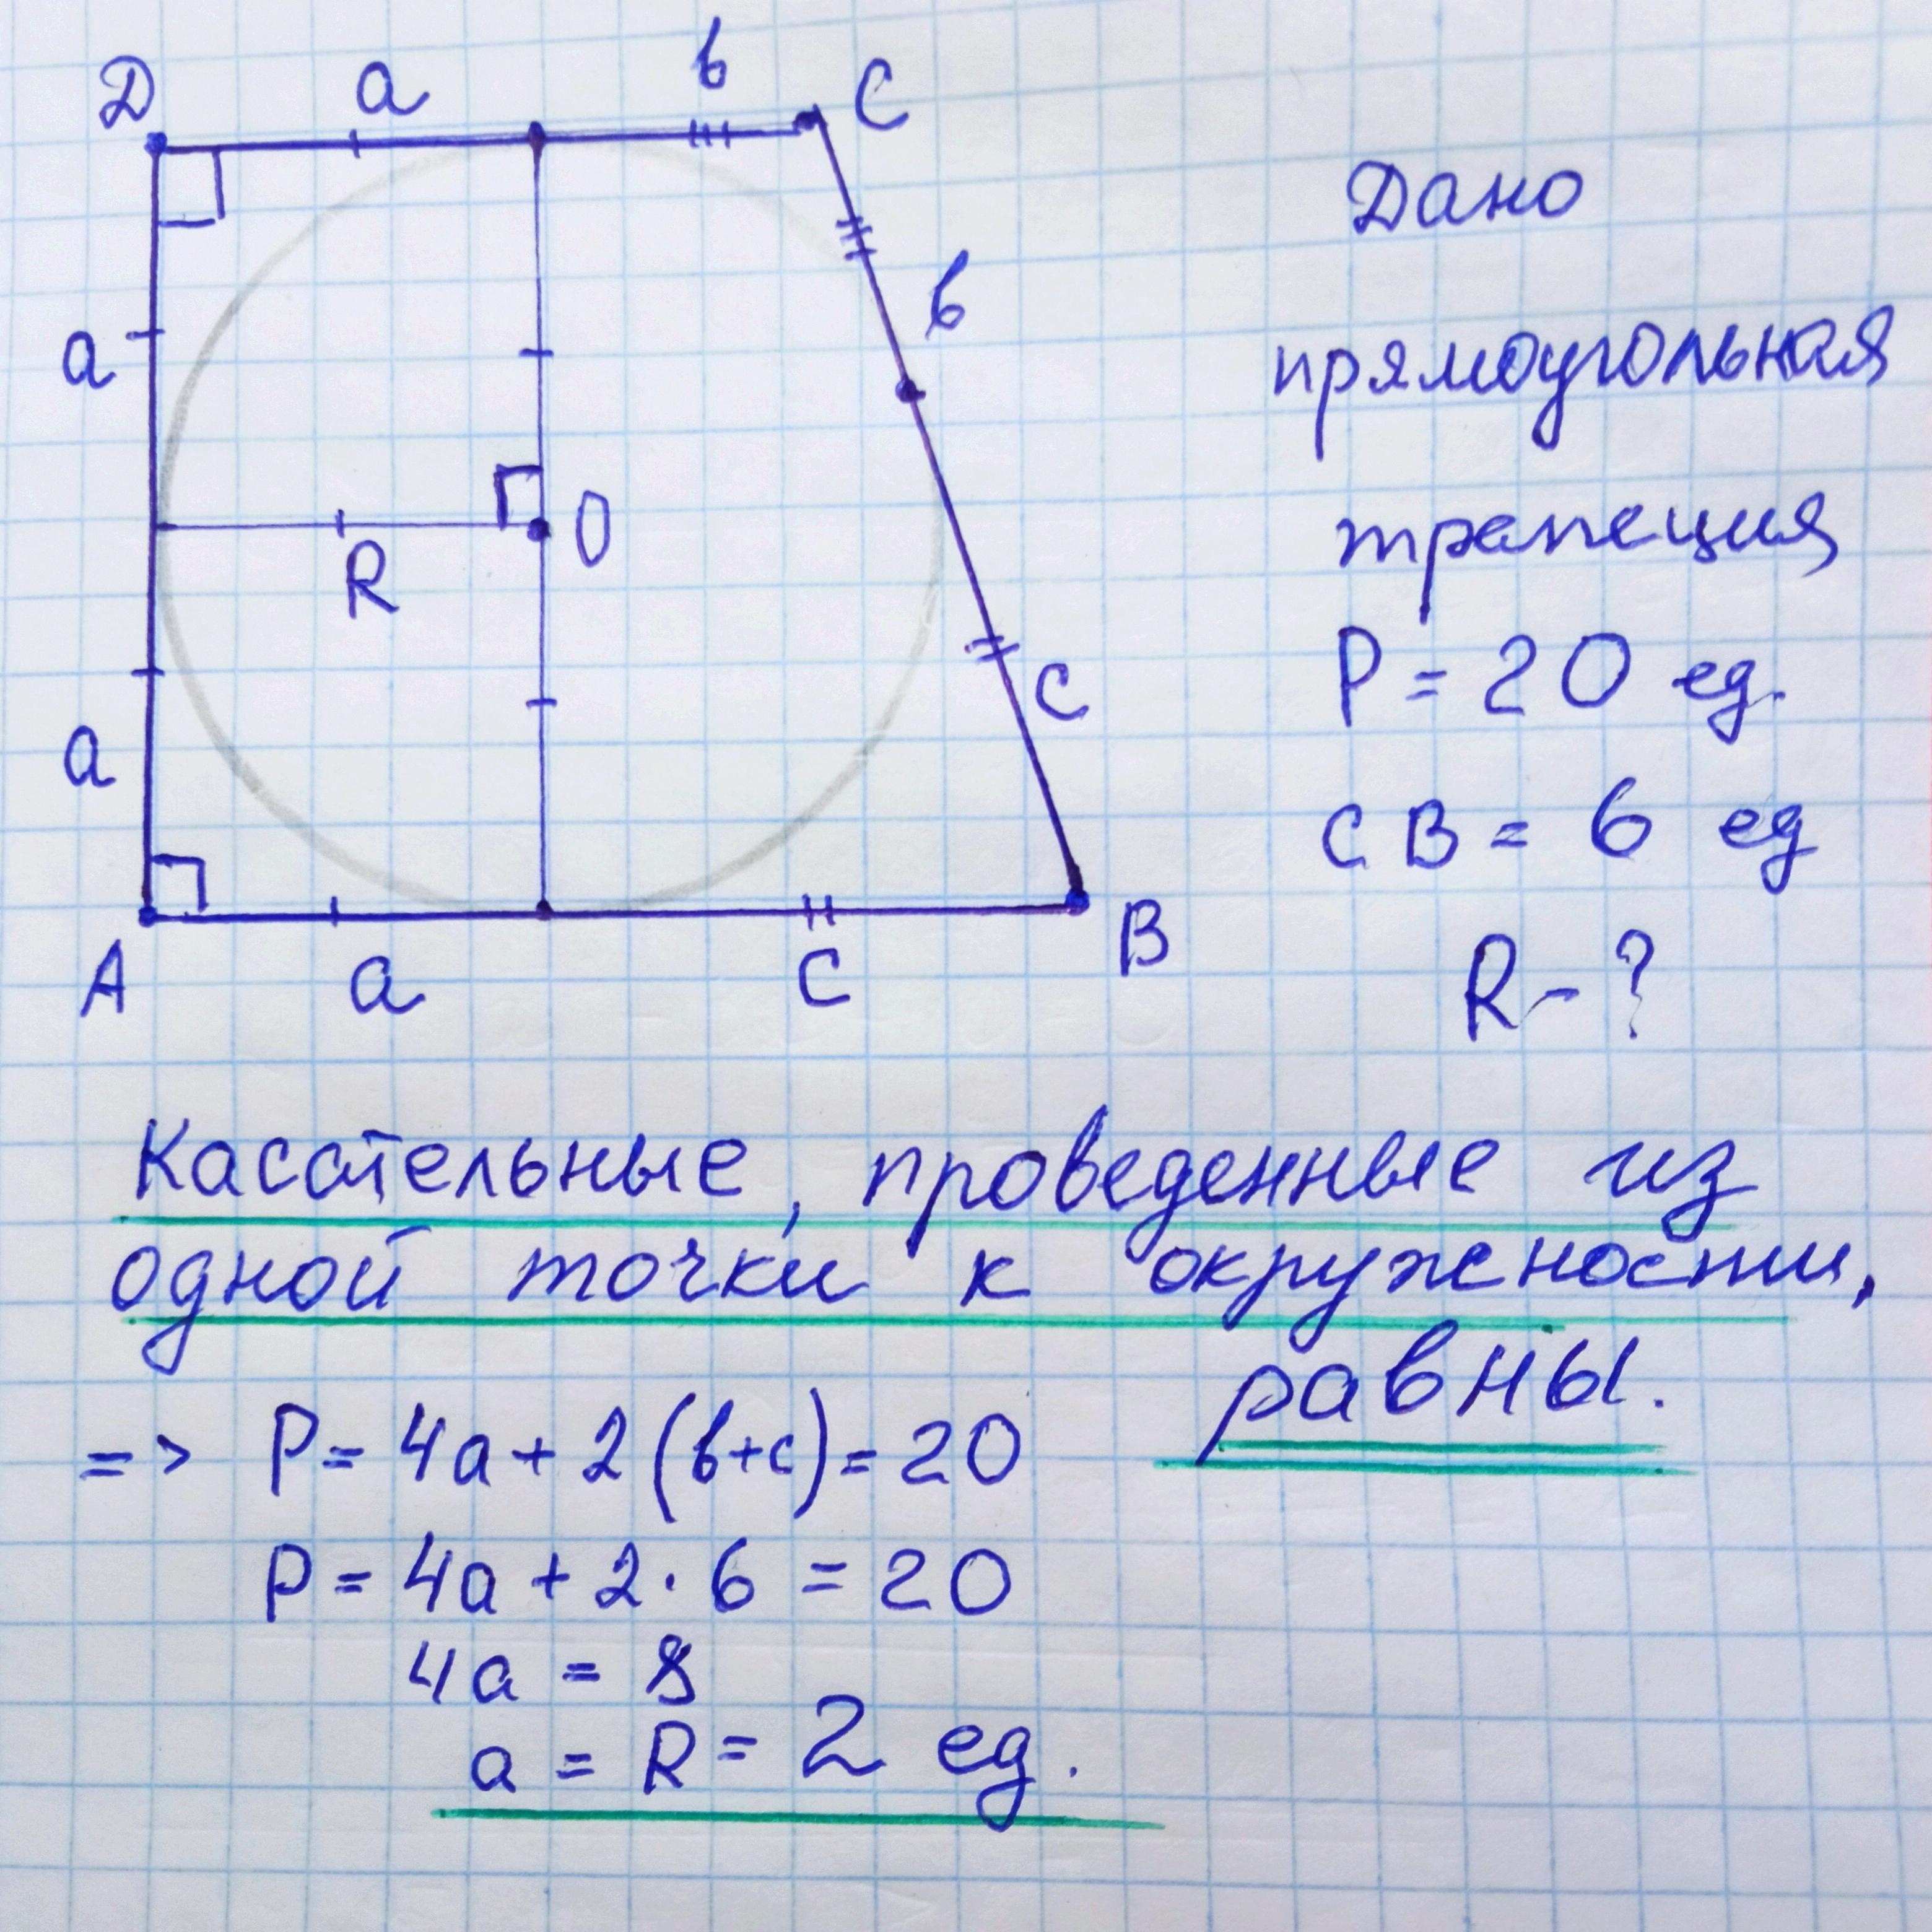 D a в C
a в
R O
a C
A a C B
Дано
прямоугольная
трапеция
P = 20 ед.
CB = 6 ед
R - ?
Касательные, проведенные из
одной точки к окружности,
равны.
=> P = 4a + 2(в+c) = 20
P = 4a + 2·6 = 20
4a = 8
a = R = 2 ед.